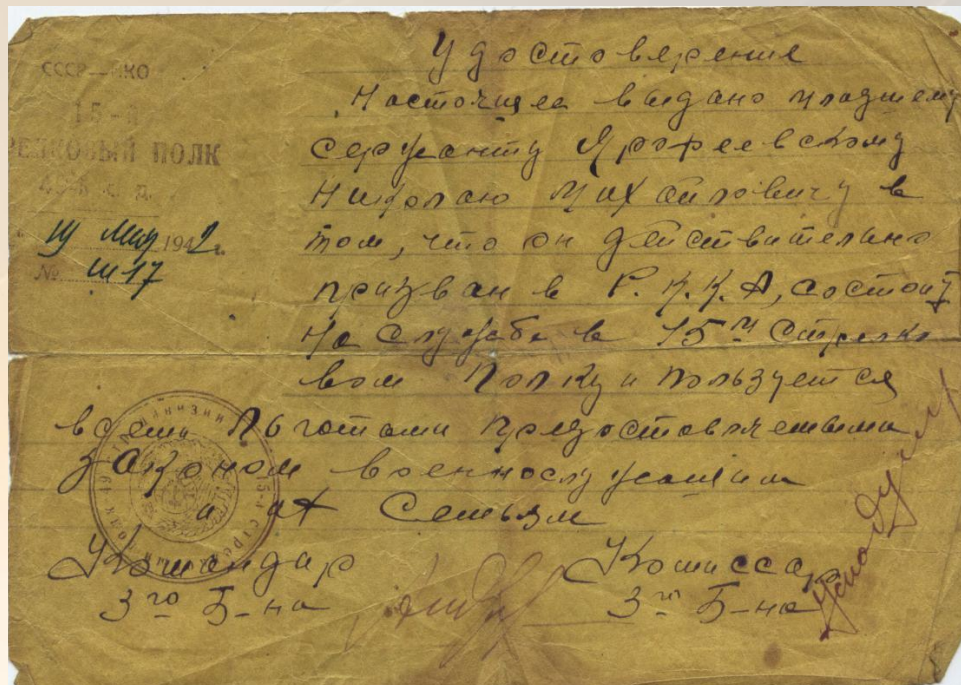 СССР—НКО
15-й
РЕЛКОВЫЙ ПОЛК
19 Мая 1942г.
№
Удостоверение
Настоящее выдано младшему
сержанту Ярофеевскому
Николаю Михайловичу в
том, что он действительно
призван в Р.К.К.А, состоит
на службе в 15м Стрелко
вом Полку и пользуется
всеми льготами предоставляемыми
законом военнослужащим
и их Семьям
Командир
3го Б-на
Комиссар
3го Б-на